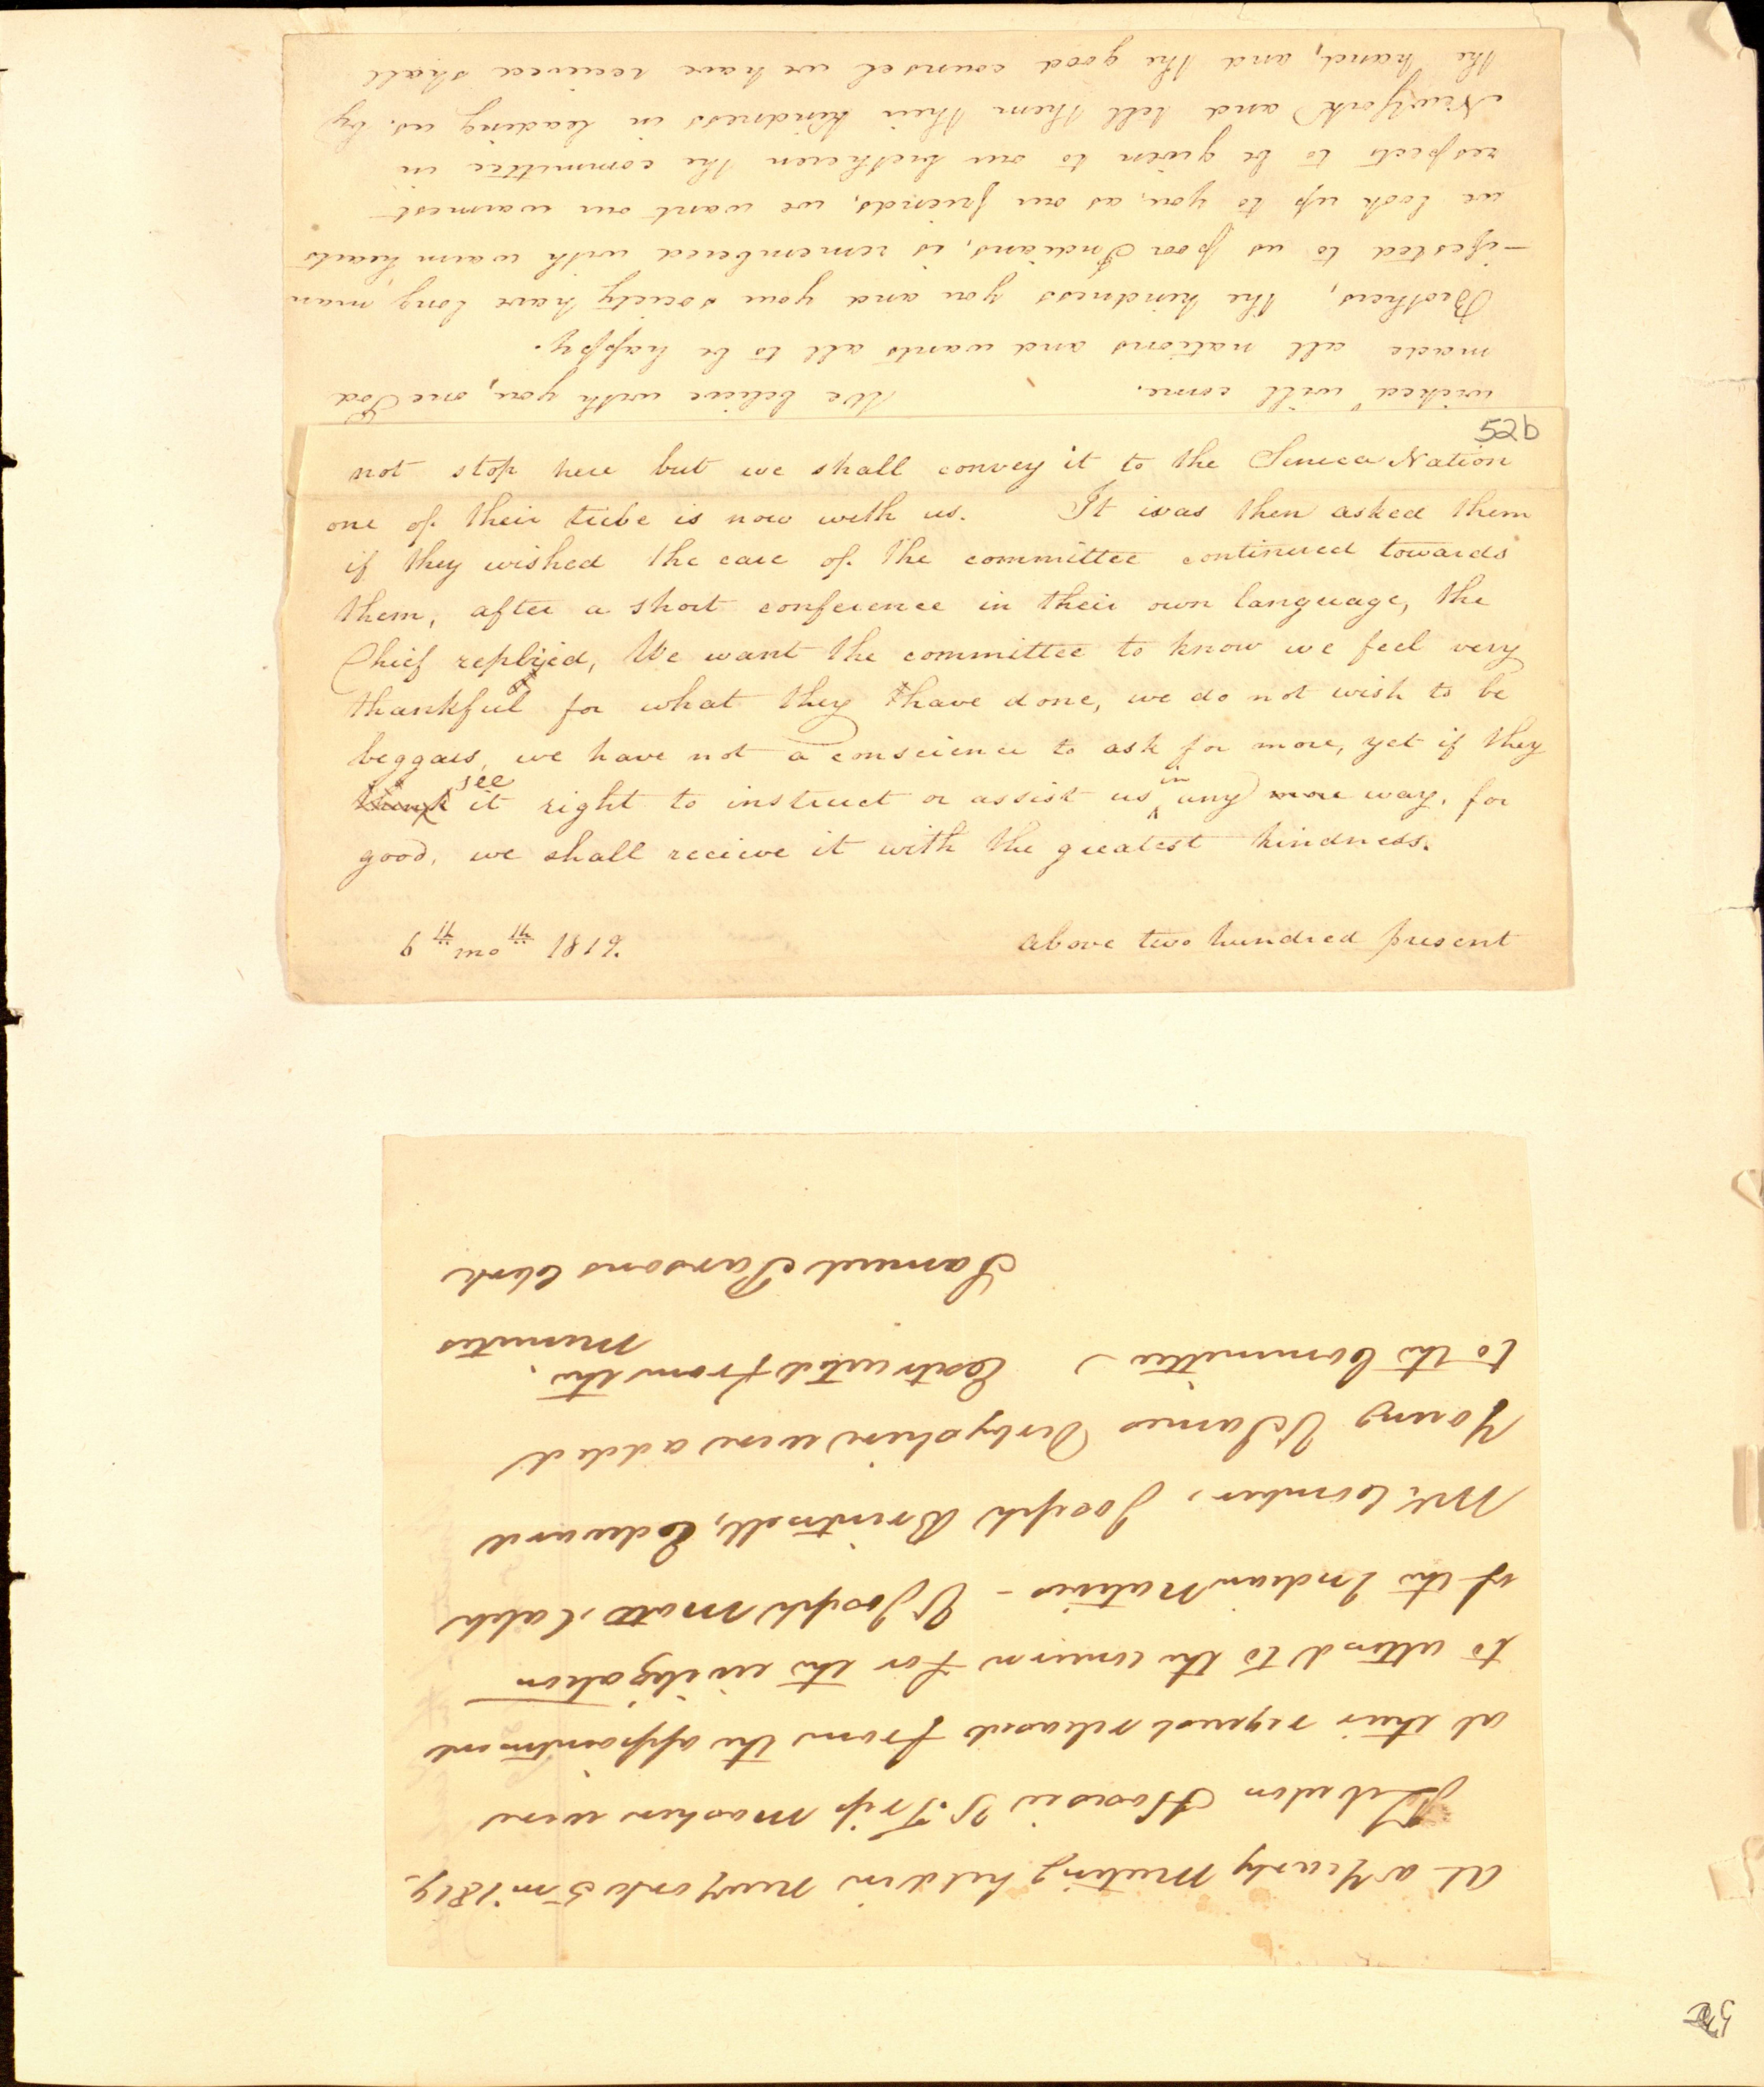 wicked will come. We believe with you, one God
made all nations and wants all to be happy.
Brothers, the kindness you and your society have long man
-ifested to us poor Indians, is remembered with warm hearts
we look up to you, as our friends, we want our warmest
respects to be given to our bretheren the committee in
New York and tell them their kindness in leading us by
the hand, and the good counsel we have received shall
52b
not stop here but we shall convey it to the Seneca Nation
one of their tribe is now with us. It was then asked them
if they wished the care of the committee continued towards
them, after a short conference in their own language, the
Chief replyed, We want the committee to know we feel very
thankful for what they have done, we do not wish to be
beggars, we have not a conscience to ask for more, yet if they
think see it right to instruct or assist us in any more way, for
good, we shall recieve it with the greatest kindness.
6th mo th 1819. above two hundred present
At a Yearly Meeting held in New York 5 mo 1819.
Hoxsie & Trip Mosher were
at their request released from the appointment
to attend to the concern for the civilization
of the Indian Natives - & Joseph Mott, Caleb
McCumber, Joseph Brintnall, Edward
Young & James Derbyshire were added
to the Committee Extracted from the
Minutes
Samuel Parsons Clerk